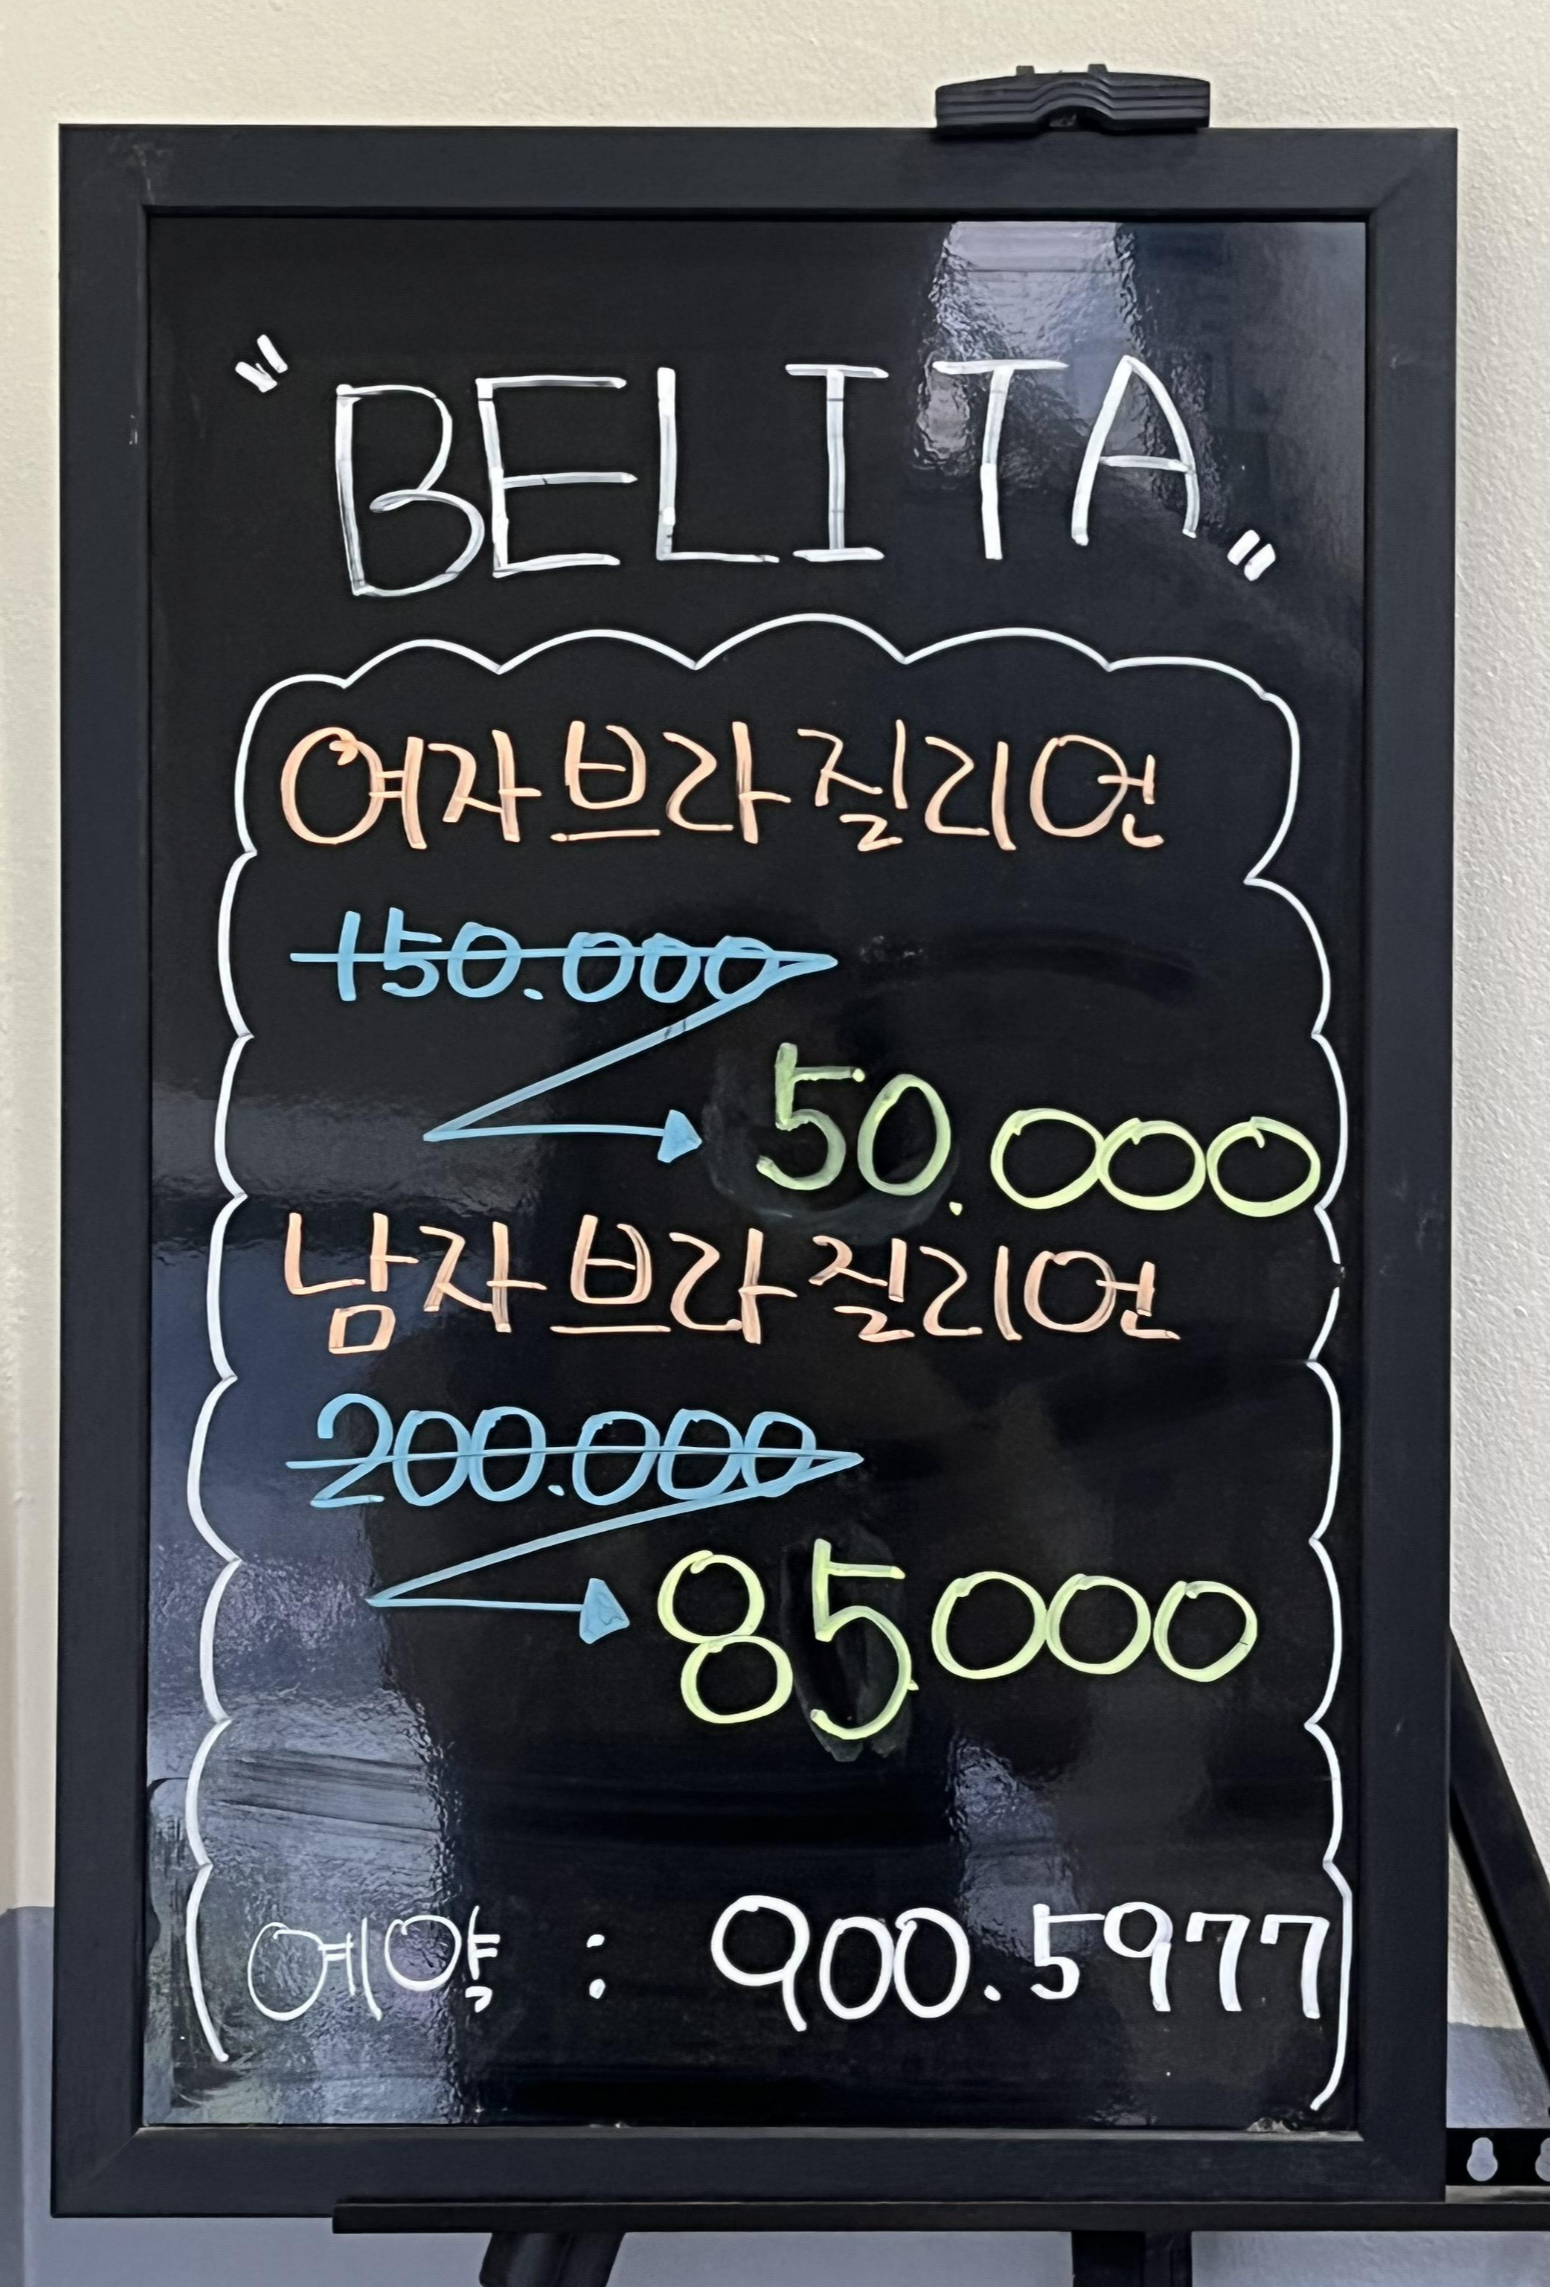 "BELITA"
여자브라질리언
150.000
50.000
남자브라질리언
200.000
85000
예약 : 900.5977